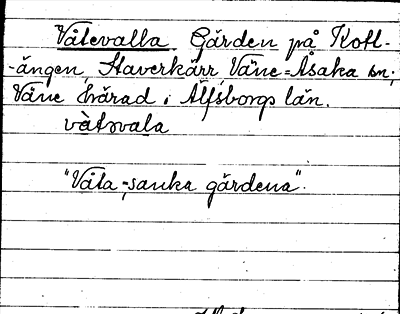 Våtevalla Gärden på Kotl-
-ängen, Staverkärr, Väne=Åsaka sn.,
Väne härad i Älfsborgs län.
vå̀təvala
"Våta, sanka gärdena".